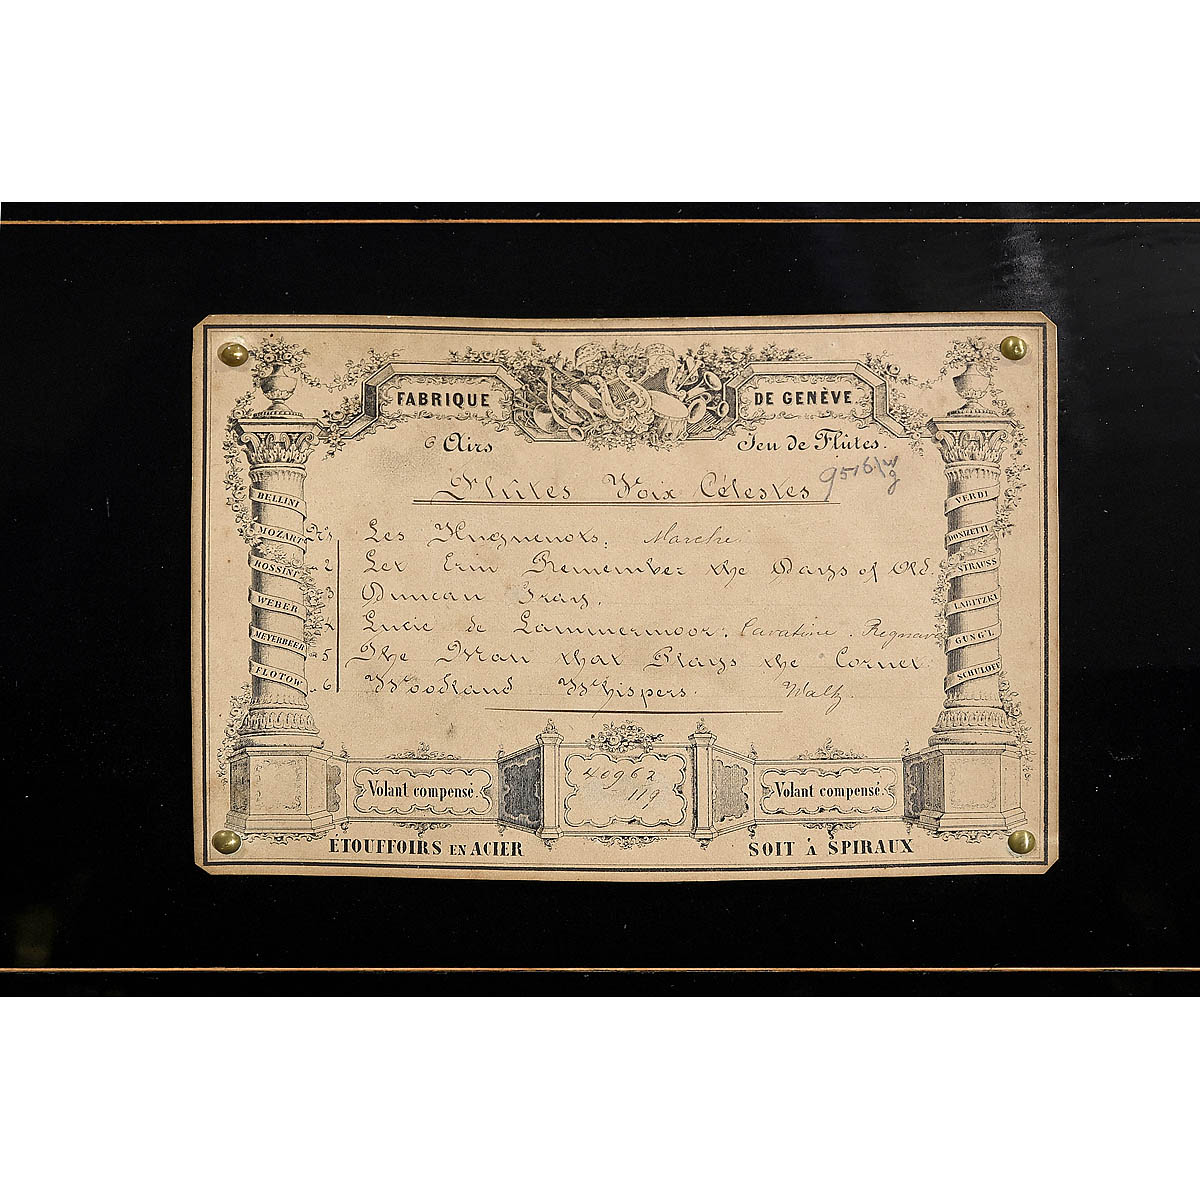 FABRIQUE DE GENÈVE
6 Airs Jeu de Flûtes.
Flûtes Voix Célestes
BELLINI
MOZART
ROSSINI
WEBER
MEYERBEER
FLOTOW
VERDI
DONIZETTI
STRAUSS
LABITZKI
GUNG'L
SCHULOFF
No 1 Les Huguenots. Marche.
2 Let Erin Remember the Days of Old.
3 Duncan Gray.
4 Lucie de Lammermoor. Cavatine.
5 The Man that Plays the Cornet
6 Woodland Whispers. Waltz.
40962
119
Volant compensé. Volant compensé.
ÉTOUFFOIRS EN ACIER SOIT À SPIRAUX